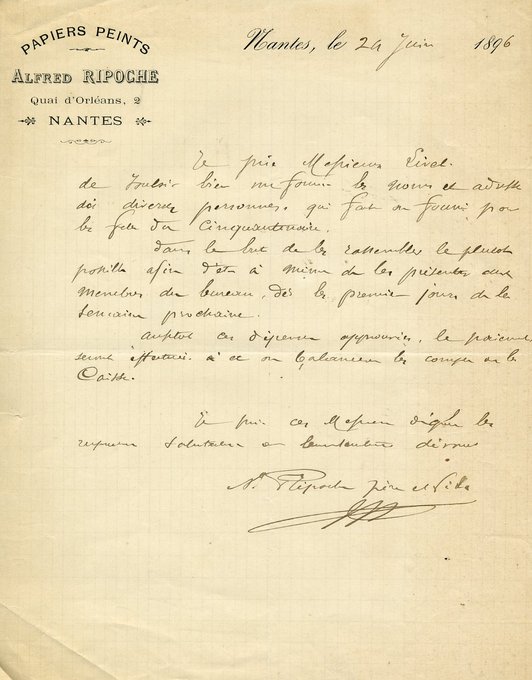 PAPIERS PEINTS
ALFRED RIPOCHE
Quai d'Orléans, 2
NANTES
Nantes, le 24 Juin 1896
Je prie Messieurs
de Vouloir bien me fournir les noms et adresse
des diverses personnes qui fait ou fourni pour
les fete du Cinquantenaire.
dans le but de les rassembler le plutot
possible afin d'etre à même de les présenter aux
membres du bureau, dès les premier jours de la
semaine prochaine.
aussitot ces dépenses approuvées, le paiement
seront effectués et on balancera les comptes de la
Caisse.
Je prie ces Messieurs d'agréer les
salutations
Ripoche